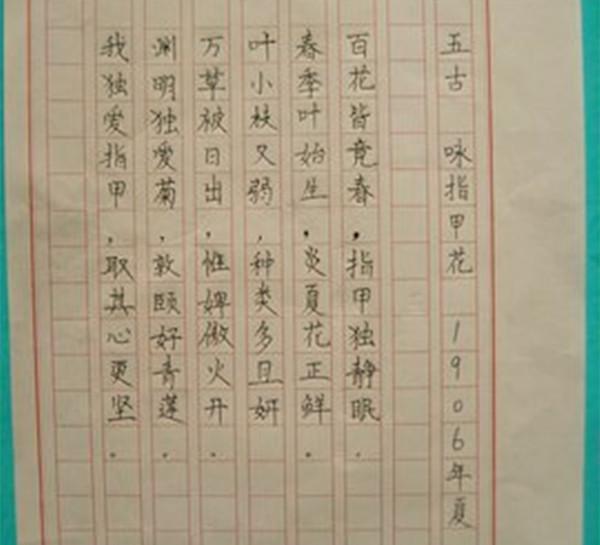 五古 咏指甲花 1906年夏
百花皆竞春，指甲独静眠.
春季叶始生，炎夏花正鲜.
叶小枝又弱，种类多且妍
万草被日出，惟婢傲火开.
渊明独爱菊，敦颐好青莲.
我独爱指甲，取其心更坚.